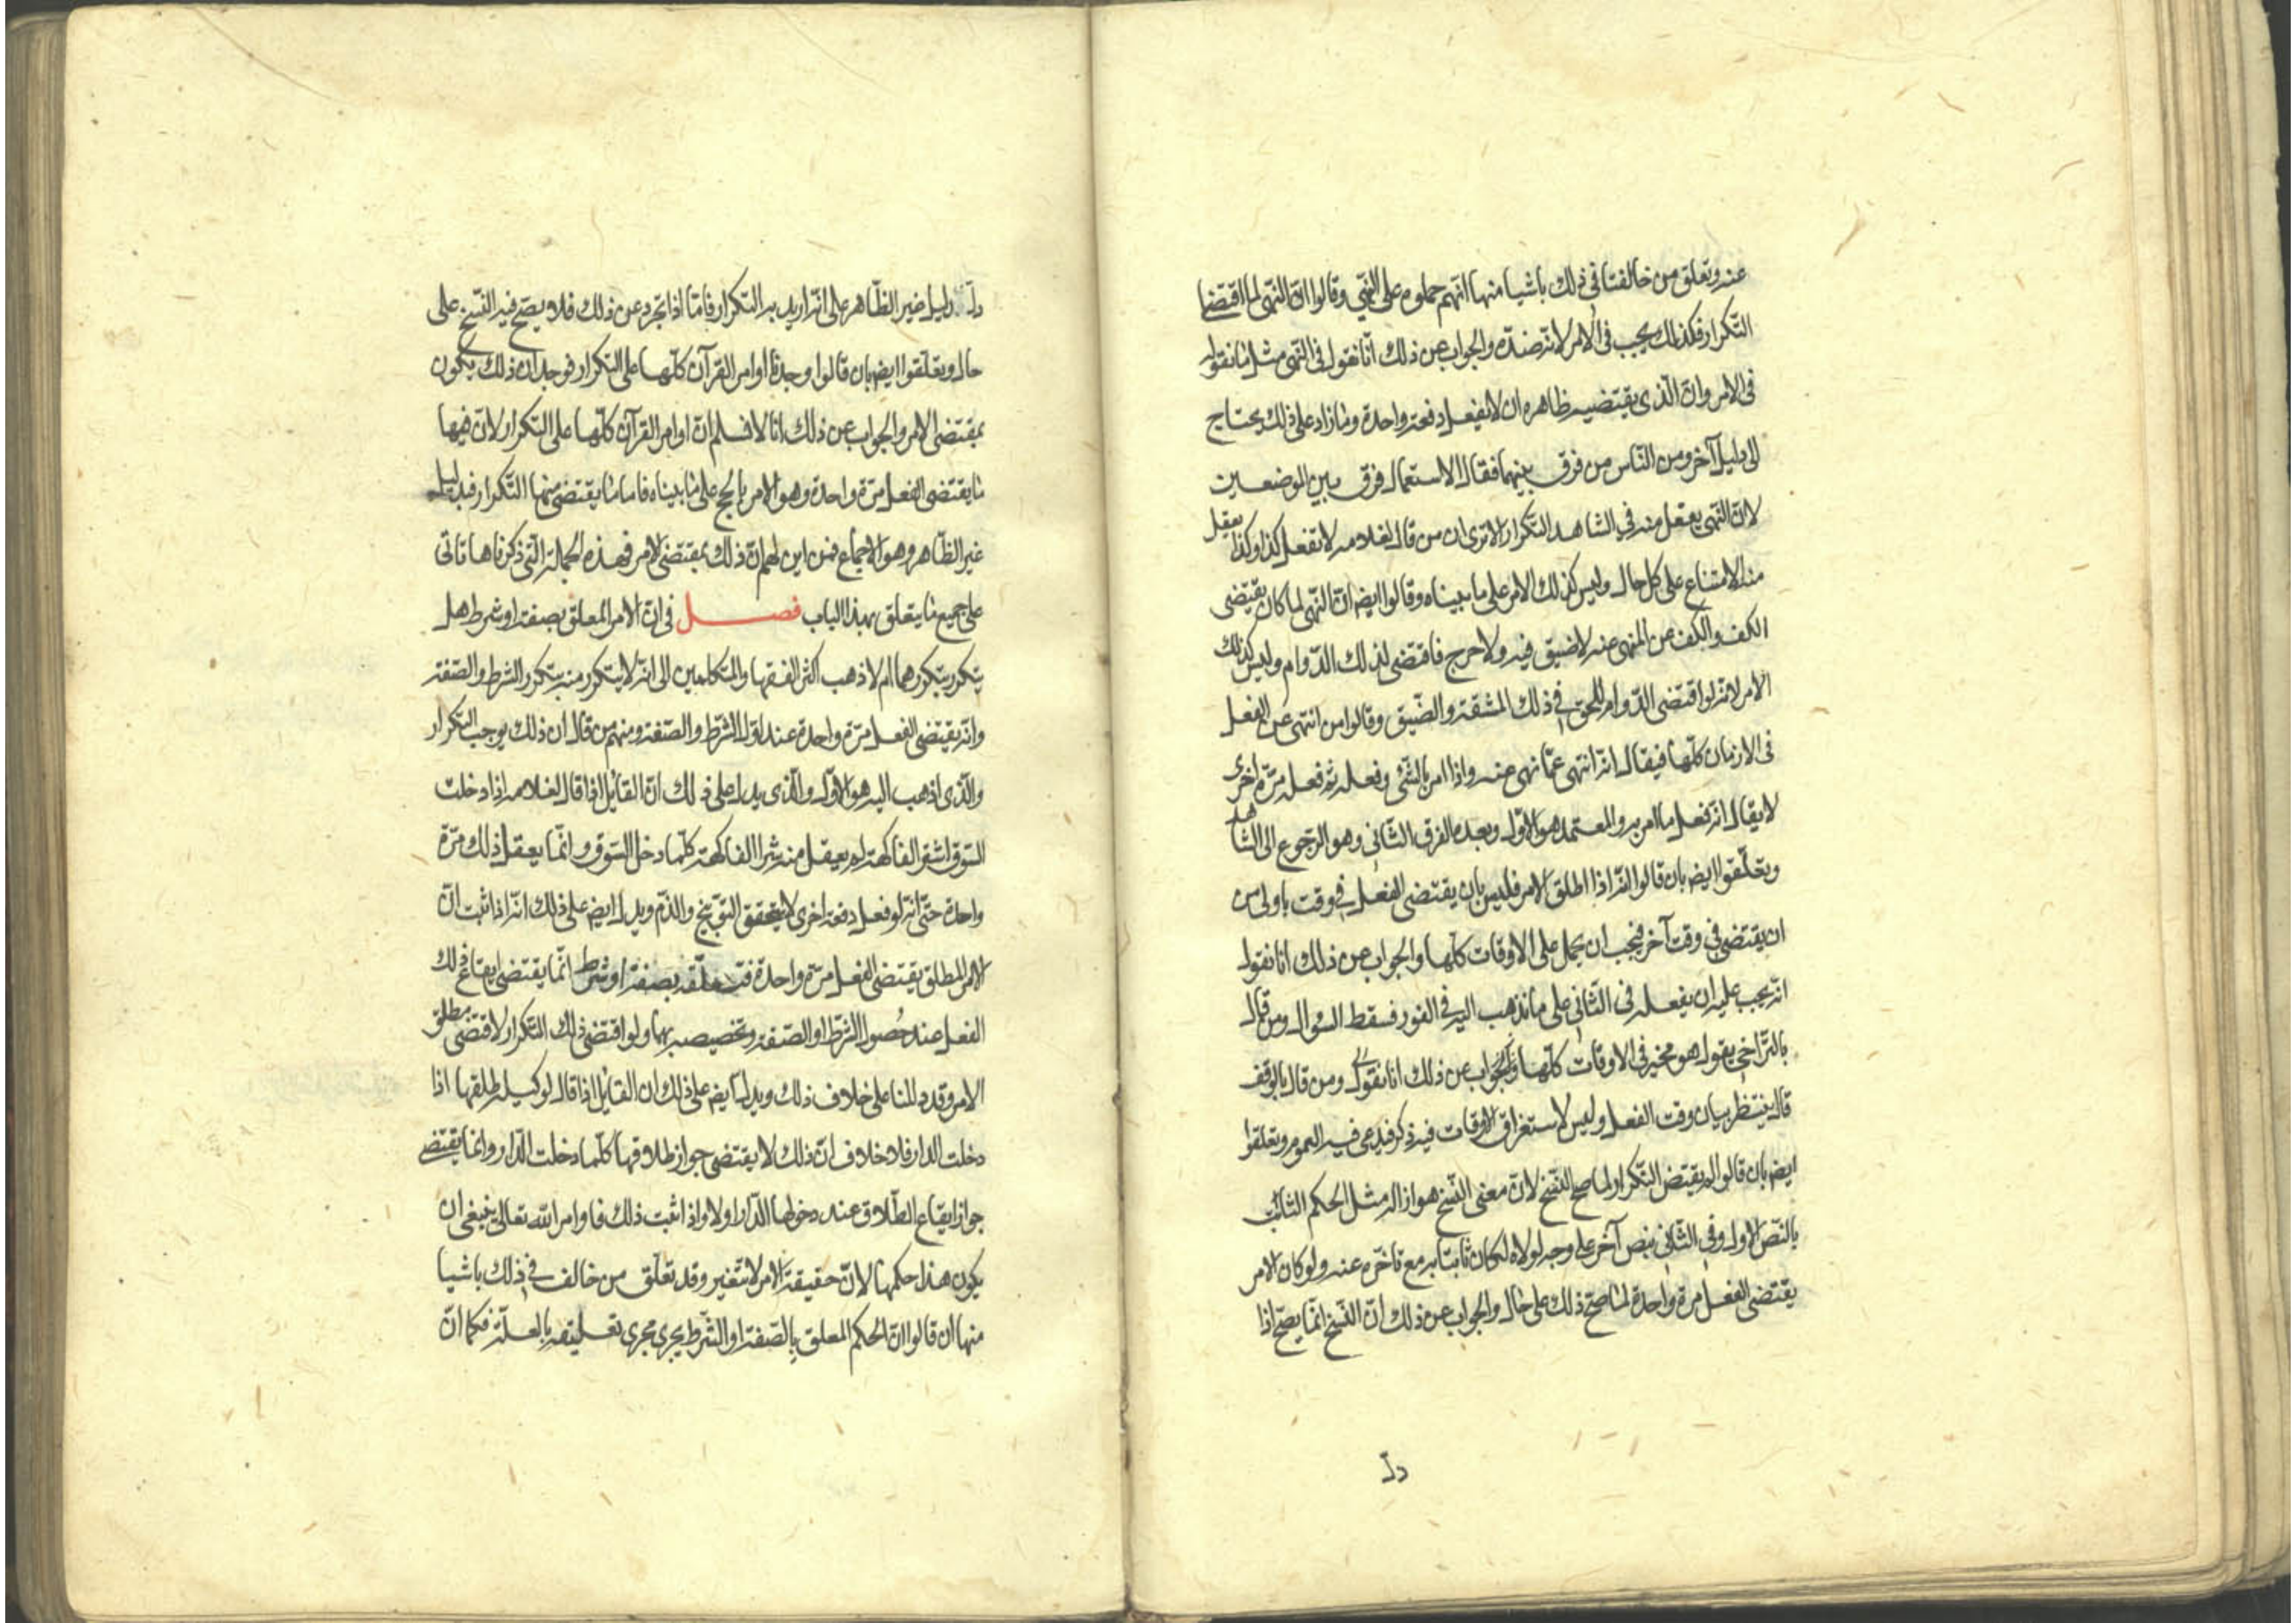 عنه وتعلق من خالفنا فى ذلك باشيا منها انهم حملوه على النهى وقالوا ان النهى لما اقتضا
التكرار فكذلك يجب فى الامر لانه ضده والجواب عن ذلك انا نقول فى النهى مثل ما نقول
فى الامر وان الذى يقتضيه ظاهره ان لا يفعل دفعة واحدة وما زاد على ذلك يحتاج
الى دليل آخر ومن الناس من فرق بينهما فقال الاستعمال فرق بين الموضعين
لان النهى يعقل منه فى الشاهد التكرار الا ترى ان من قال لغلامه لا تفعل كذا وكذا يعقل
منه الامتناع على كل حال وليس كذلك الامر على ما بيناه وقالوا ايضم ان النهى لما كان يقتضى
الكف والكف عن المنهى عنه لا ضيق فيه ولا حرج فاقتضى لذلك الدوام وليس كذلك
الامر لانه لو اقتضى الدوام للحق فى ذلك المشقة والضيق وقالوا من انتهى عن الفعل
فى الازمان كلها فيقال انه انتهى عما نهى عنه واذا امر بالشئ وفعله ثم فعله مرة اخرى
لا يقال انه فعل ما امر به والمعتمد هو الاول وبعده الفرق الثانى وهو الرجوع الى الشاهد
وتعلقوا ايضم بان قالوا انه اذا اطلق الامر فليس بان يقتضى الفعل فى وقت باولى من
ان يقتضى فى وقت آخر فيجب ان يحمل على الاوقات كلها والجواب عن ذلك انا نقول
انه يجب عليه ان يفعله فى الثانى على ما نذهب اليه فى الفور فسقط السؤال ومن قال
بالتراخى يقول هو مخير فى الاوقات كلها والجواب عن ذلك انا نقول ومن قال بالوقف
قال ينتظر بيان وقت الفعل وليس لاستغراق الاوقات فيه ذكر فيدعى فيه العموم وتعلقوا
ايضم بان قالوا لو لم يقتض التكرار لما صح النسخ لان معنى النسخ هو ازالة مثل الحكم الثابت
بالنص الاول وفى الثانى بنص آخر على وجه لولاه لكان ثابتا به مع تاخره عنه ولو كان الامر
يقتضى الفعل مرة واحدة لما صح ذلك على حال والجواب عن ذلك ان النسخ انما يصح اذا
دل
دل دليل غير الظاهر على انه اريد به التكرار فاما اذا تجرد عن ذلك فلا يصح فيه النسخ على
حال وتعلقوا ايضم بان قالوا وجدنا اوامر القرآن كلها على التكرار فوجب ان ذلك يكون
بمقتضى الامر والجواب عن ذلك انا لا نسلم ان اوامر القرآن كلها على التكرار لان فيها
ما يقتضى الفعل مرة واحدة وهو الامر بالحج على ما بيناه فاما ما يقتضى منها التكرار فبدليل
غير الظاهر وهو الاجماع فمن اين لهم ان ذلك بمقتضى الامر فهذه الجملة التى ذكرناها تاتى
على جميع ما يتعلق بهذا الباب فصل فى ان الامر المعلق بصفة او شرط هل
يتكرر بتكررهما ام لا ذهب اكثر الفقها والمتكلمين الى انه لا يتكرر منه بتكرر الشرط والصفة
وانه يقتضى الفعل مرة واحدة عند اول الشرط والصفة ومنهم من قال ان ذلك يوجب التكرار
والذى اذهب اليه هو الاول والذى يدل على ذلك ان القائل اذا قال لغلامه اذا دخلت
السوق اشتر الفاكهة لم يعقل منه شرا الفاكهة كلما دخل السوق وانما يعقل ذلك مرة
واحدة حتى انه لو فعل دفعة اخرى لا يستحق التوبيخ والذم ويدل ايضم على ذلك انه اذا ثبت ان
الامر المطلق يقتضى الفعل مرة واحدة بصفة او شرط انما يقتضى ايقاع ذلك
الفعل عند حصول الشرط او الصفة وتخصيصه بهما ولو اقتضى ذلك التكرار لاقتضى مطلق
الامر وقد دللنا على خلاف ذلك ويدل ايضم على ذلك ان القائل اذا قال لوكيله طلقها اذا
دخلت الدار فلا خلاف ان ذلك لا يقتضى جواز طلاقها كلما دخلت الدار وانما يقتضى
جواز ايقاع الطلاق عند دخولها الدار اولا واذا ثبت ذلك فاوامر الله تعالى ينبغى ان
يكون هذا حكمها لان حقيقة الامر لا تتغير وقد تعلق من خالف فى ذلك باشيا
منها ان قالوا ان الحكم المعلق بالصفة او الشرط يجرى مجرى تعليقه بالعلة فكما ان